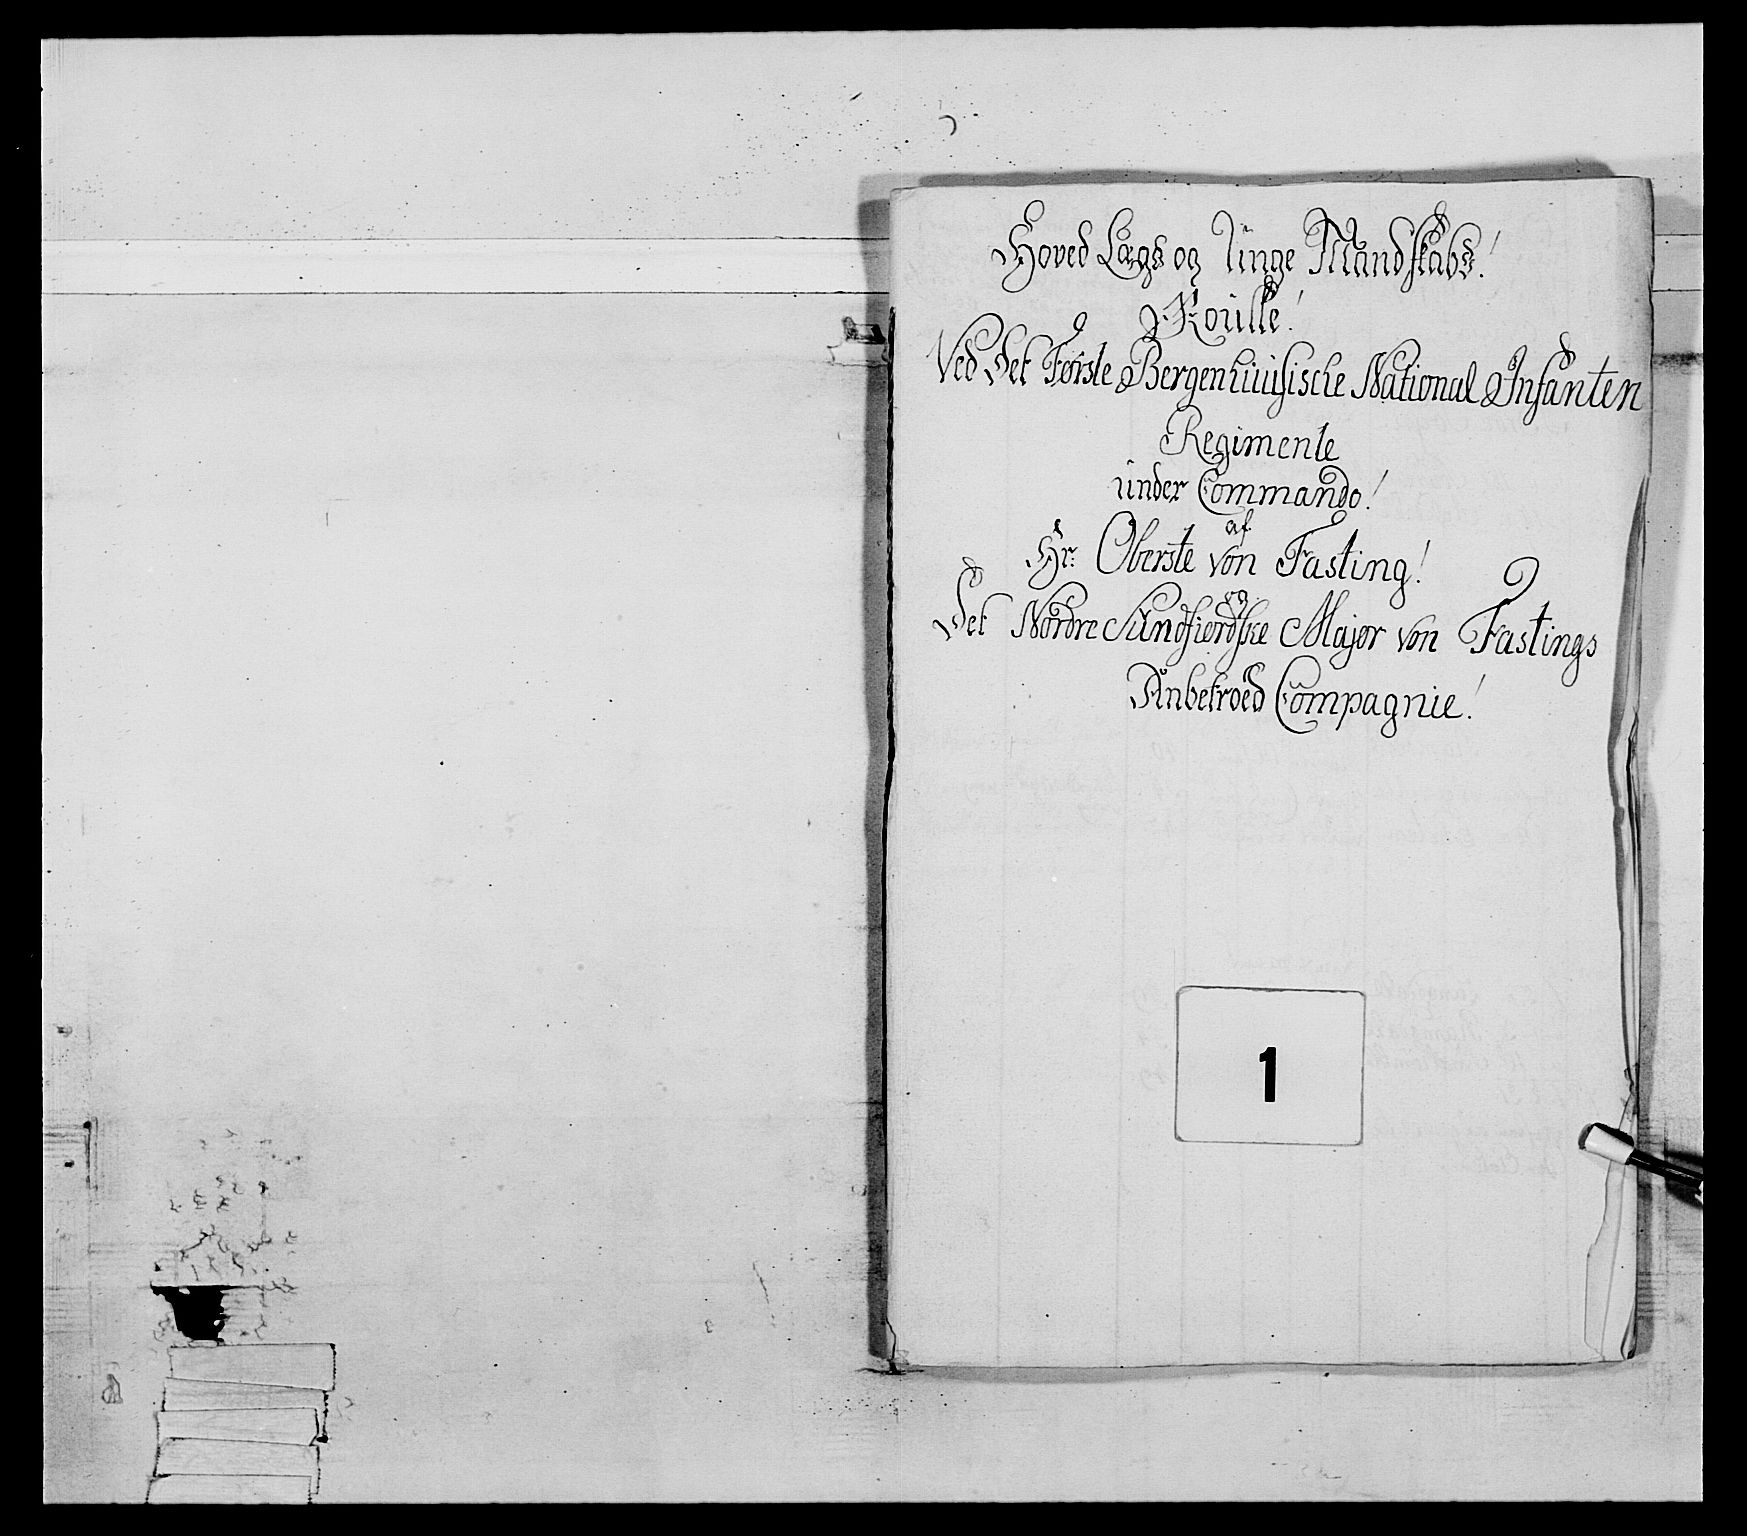 Hoved Lægs og Ünge Mandskabs!
Roülle!
Ved Det Første Bergenhuusische National Infanteri
Regimente
ünder Commando!
af
Hr: Oberste von Fasting!
og
Det Nordre Sündfiordske Major von Fastings
Anbetroed Compagnie!
1